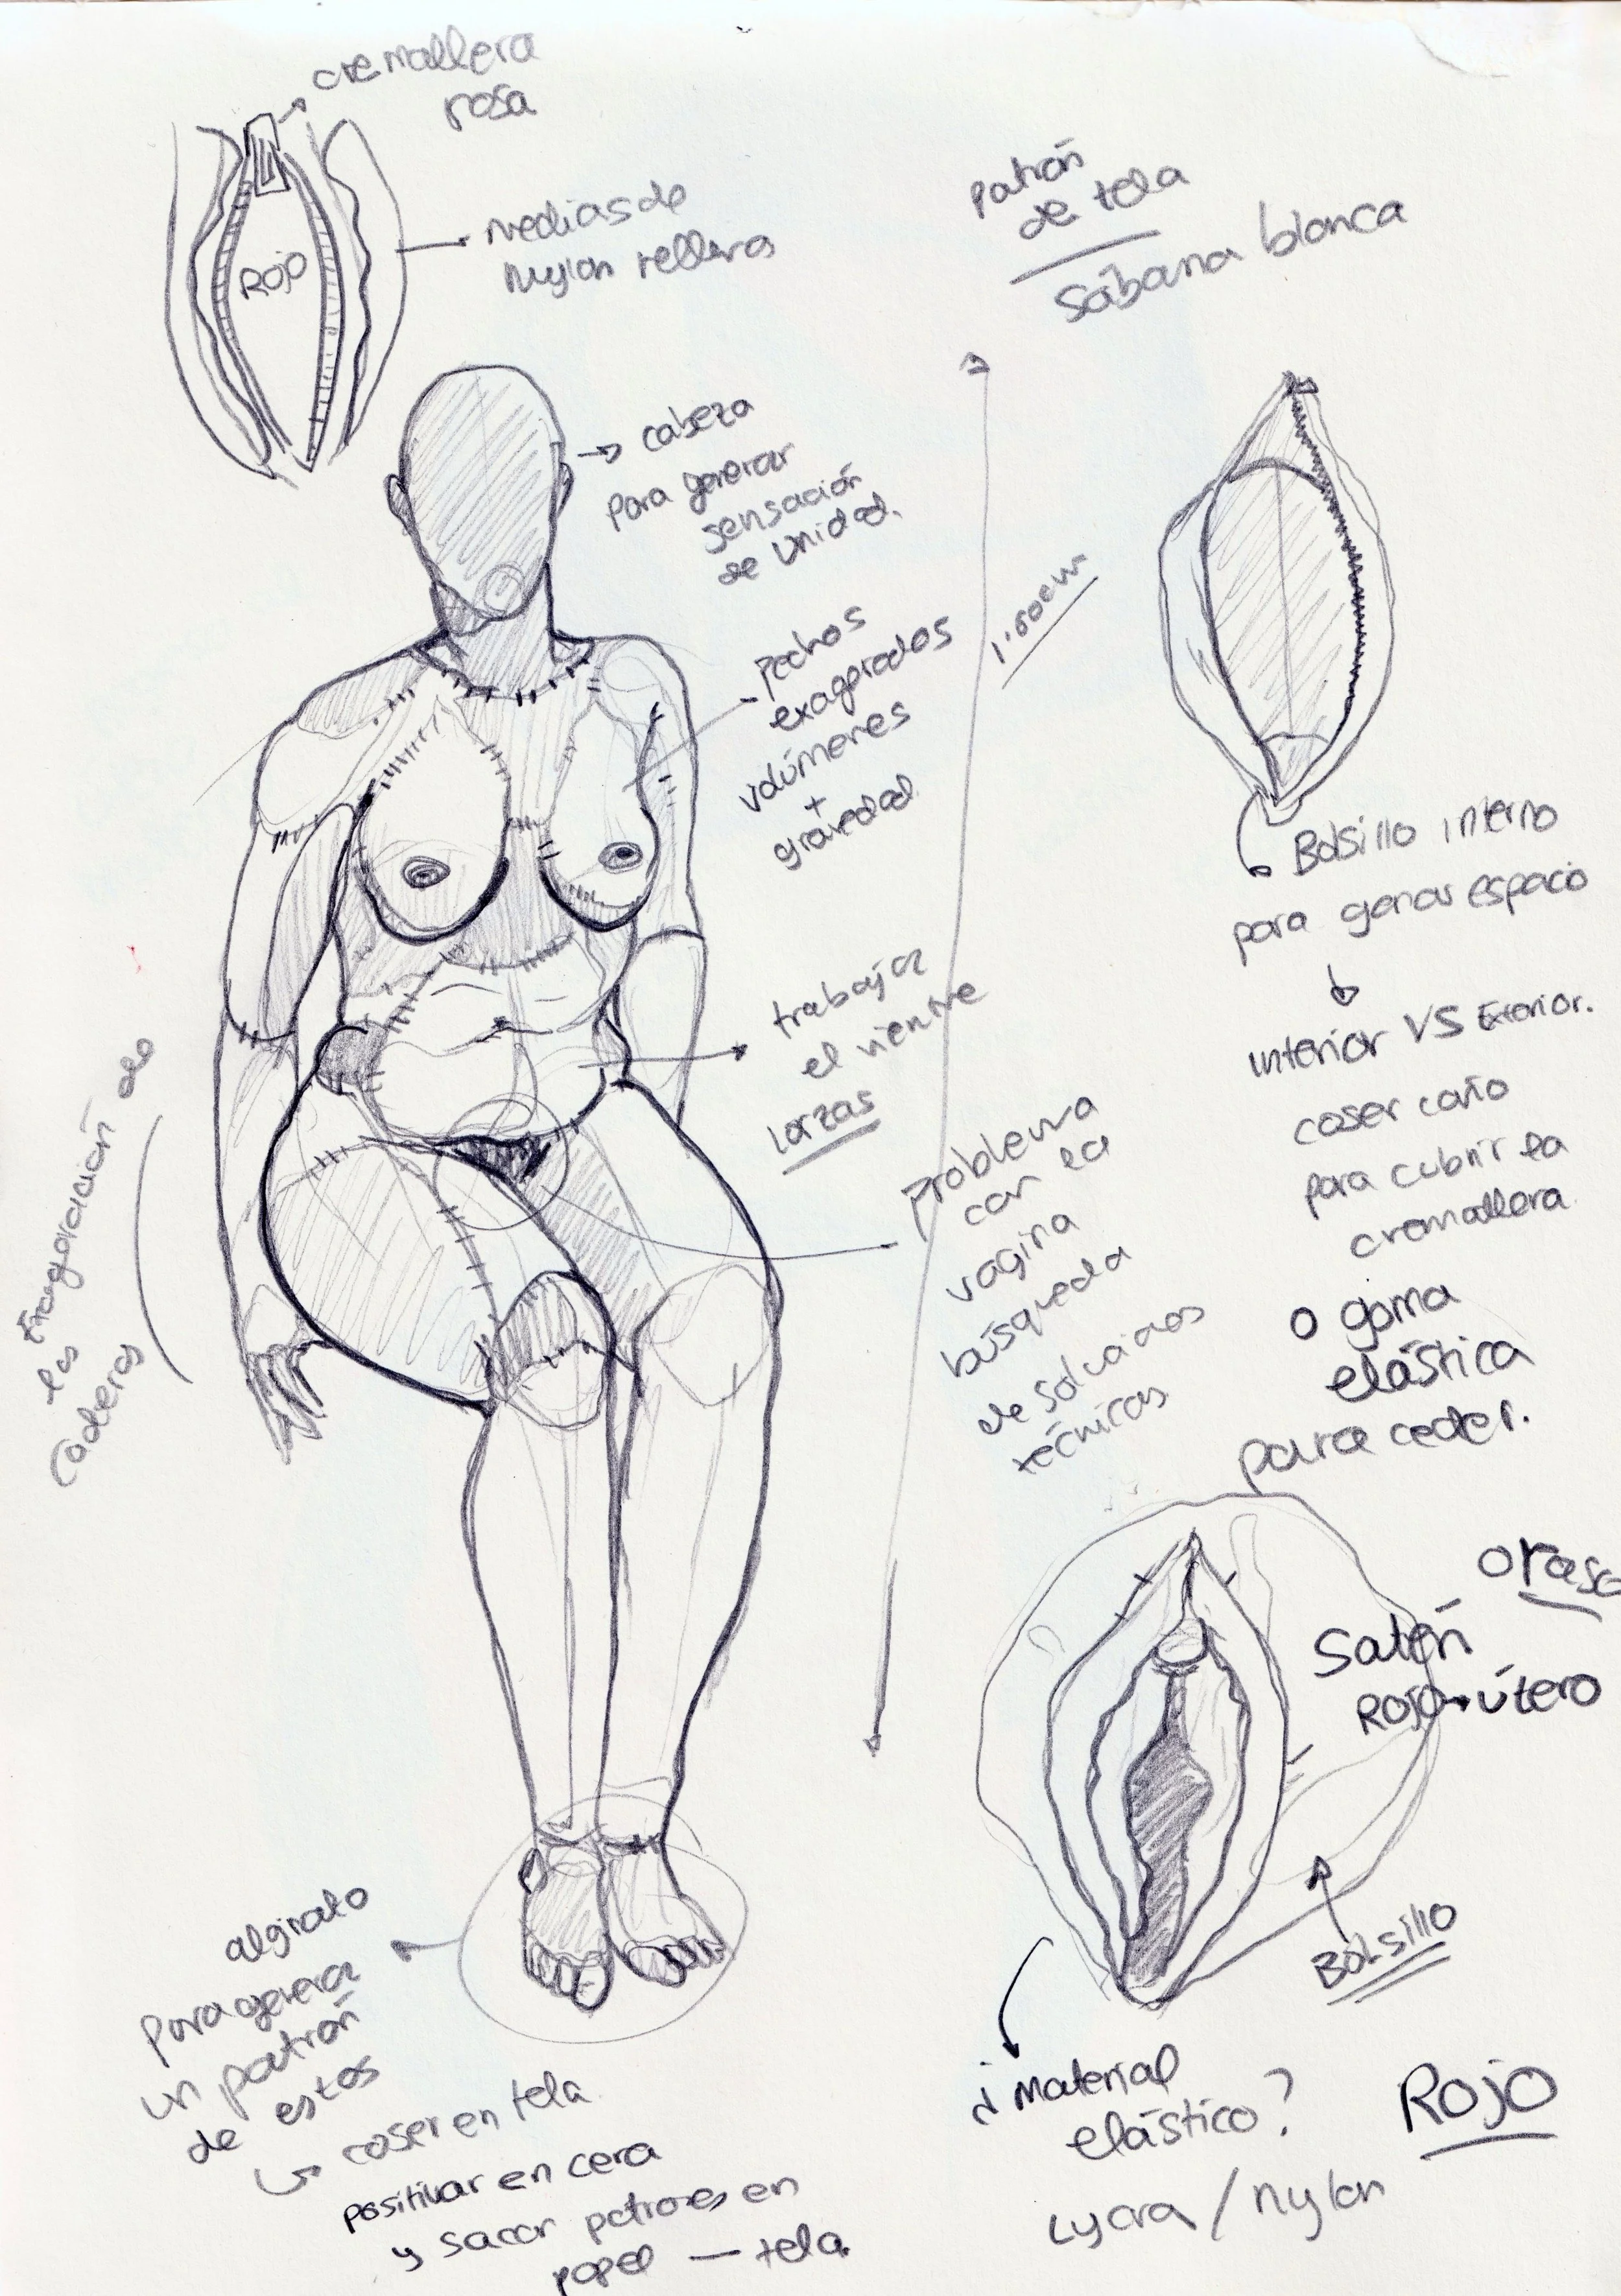 cremallera
rosa
medias de
Nylon rellenas
ROJO
patrón
de tela
Sábana blanca
cabeza
para generar
sensación
de unidad.
pechos
exagerados
volúmenes
+
gravedad
Bolsillo interno
para ganar espacio
interior VS Exterior.
coser coño
para cubrir la
cremallera
o goma
elástica
para ceder.
trabajar
el vientre
lorzas
problema
con la
vagina
búsqueda
de soluciones
técnicas
Exageración de
las
caderas
o raso
Satén
Rojo útero
Bolsillo
¿Material
elástico?
Lycra / nylon
ROJO
alginato
para generar
un patrón
de estos
coser en tela
positivar en cera
y sacar patrones en
papel — tela.